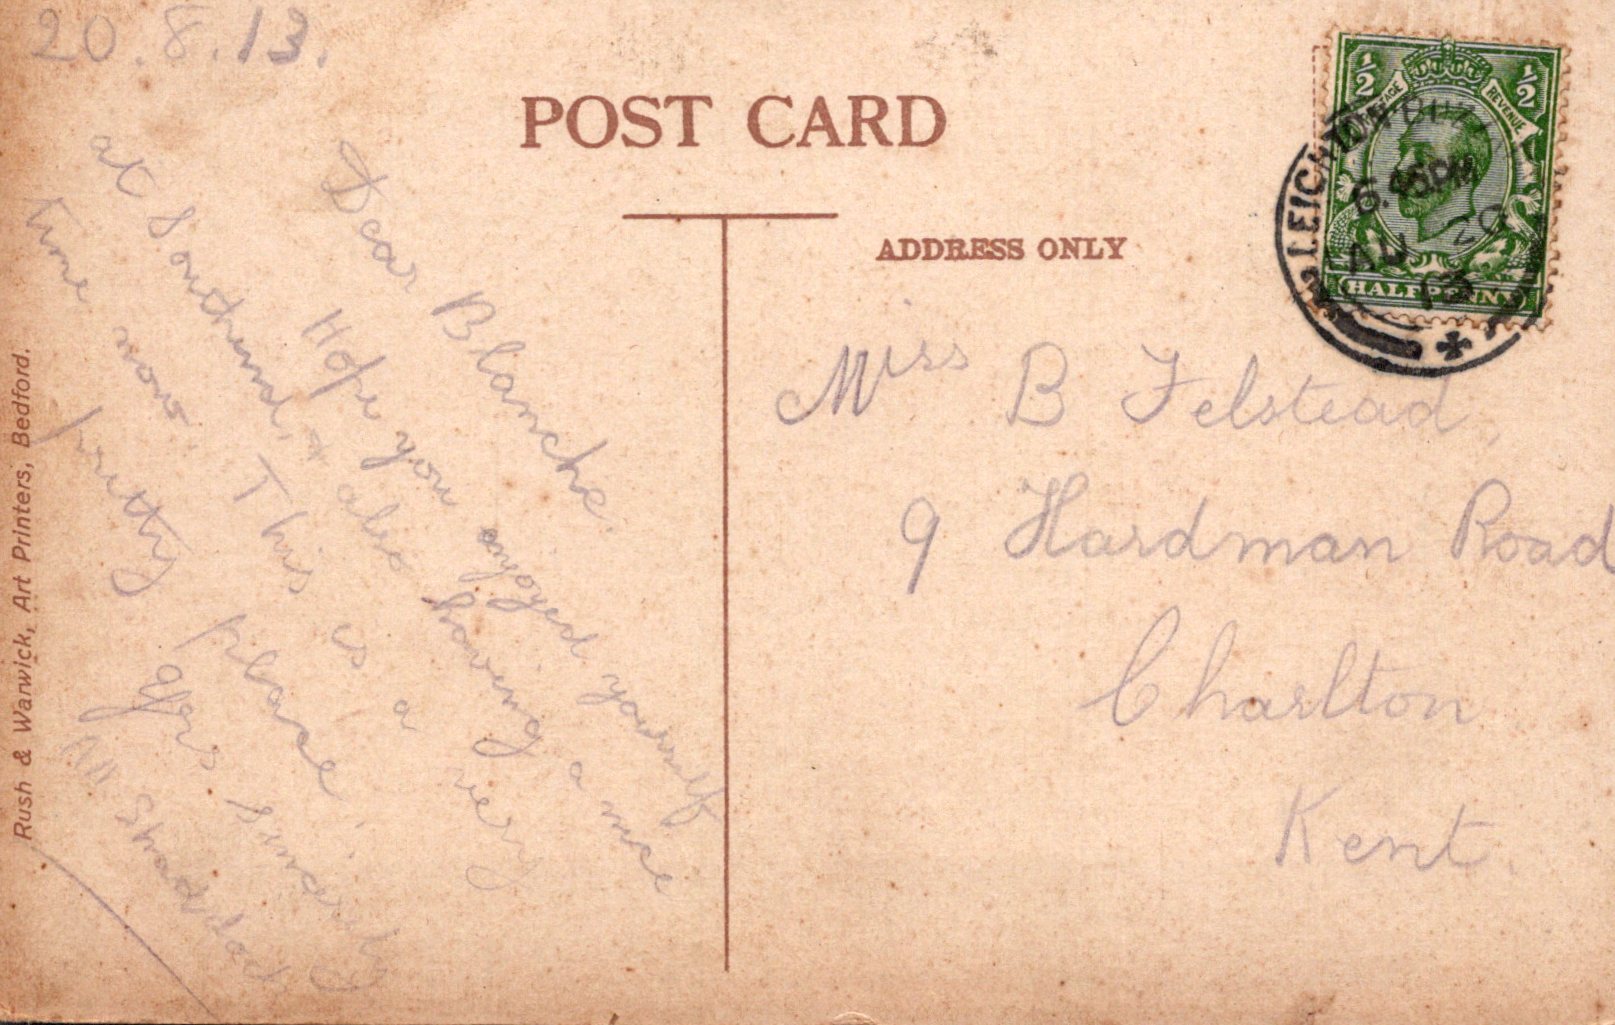 20.8.13.
POST CARD
ADDRESS ONLY
Dear Blanche.
Hope you enjoyed yourself
at Southend, & also having a nice
time now. This is a very
pretty place.
Yrs sincerely
Miss B Felstead,
9 Hardman Road
Charlton
Kent.
Rush & Warwick, Art Printers, Bedford.
½ ½
POSTAGE REVENUE
HALFPENNY
LEIGHTON BUZZ
6.45PM
AU 20
13